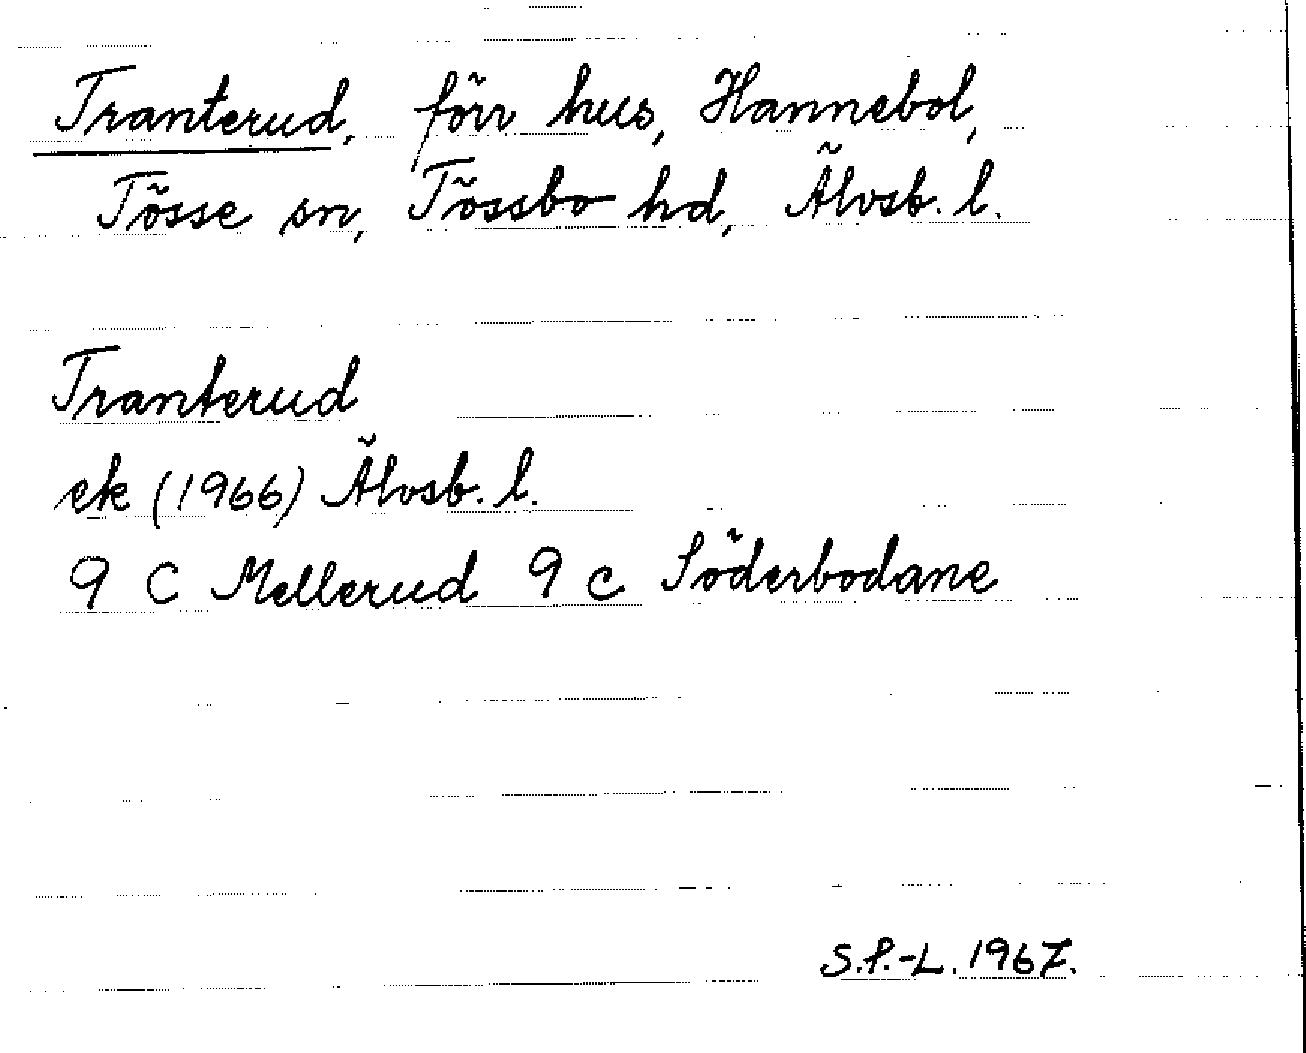 Tranterud, förr hus, Hannebol,
Tösse sn, Tössbo hd, Älvsb. l.
Tranterud
ek (1966) Älvsb. l.
9 C Mellerud 9 c Söderbodane
S.P.-L. 1967.